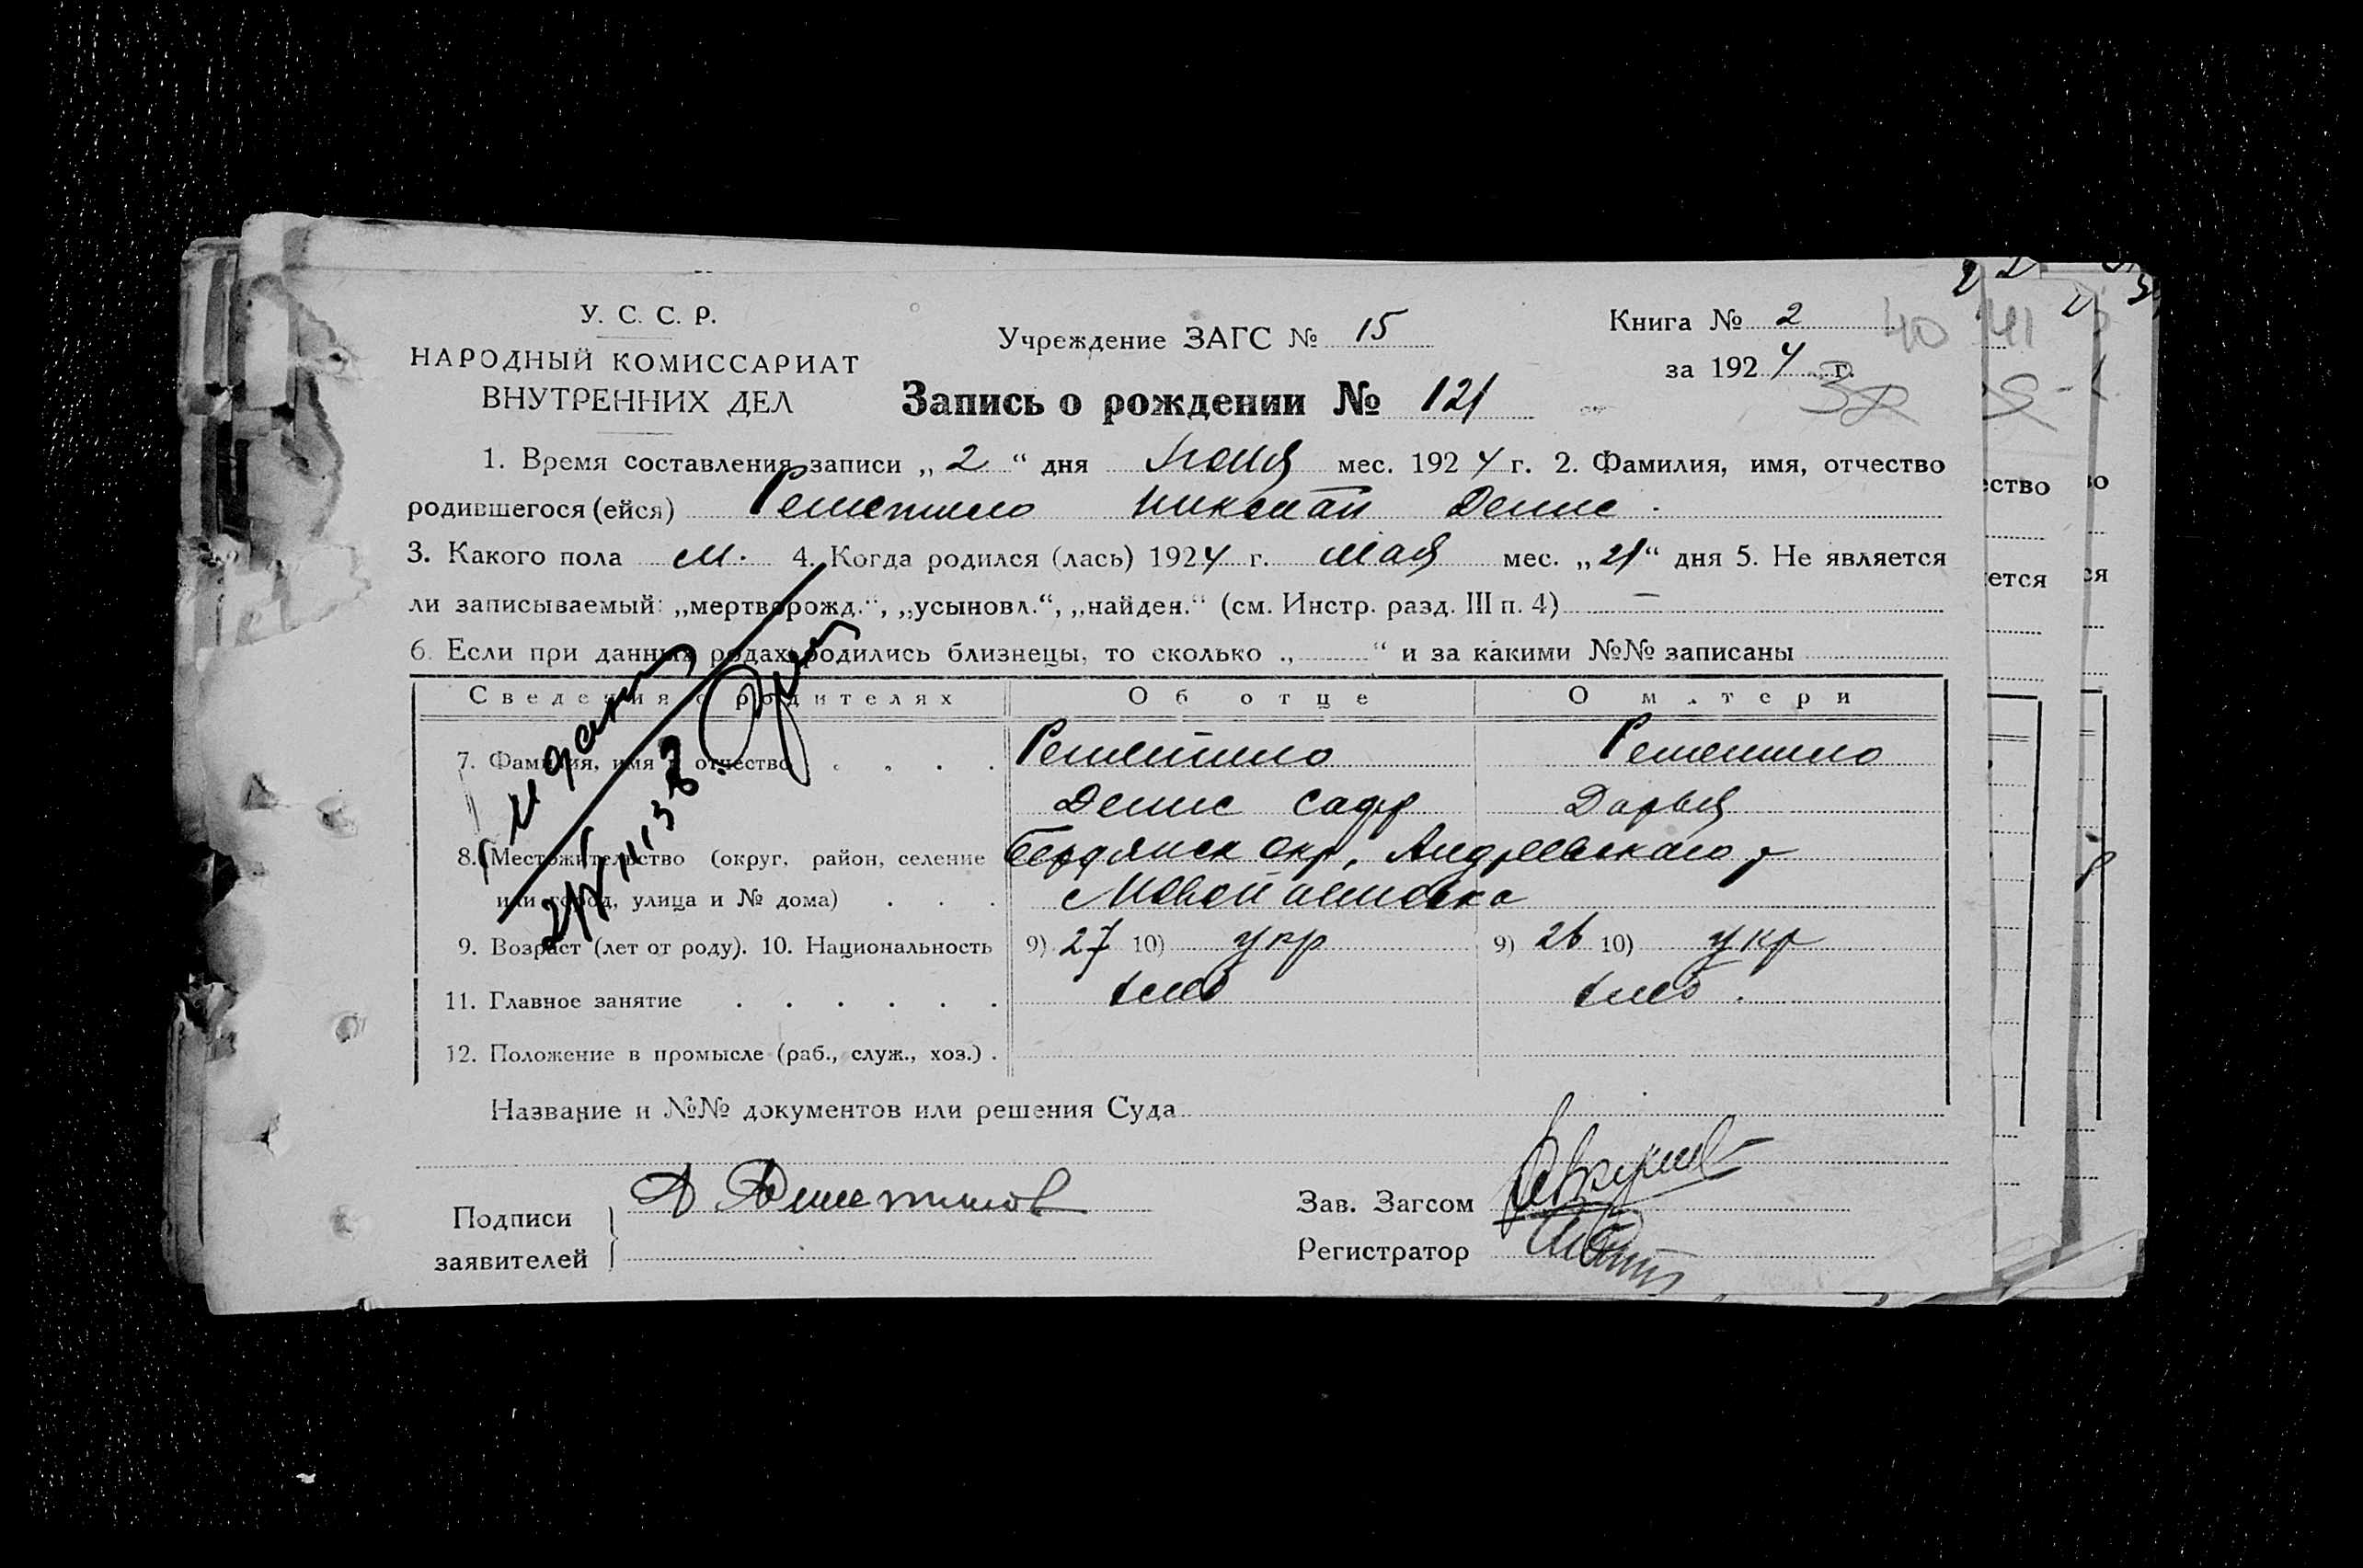 У. С. С. Р.
НАРОДНЫЙ КОМИССАРИАТ
ВНУТРЕННИХ ДЕЛ
Учреждение ЗАГС № 15
Книга № 2
за 1924 г.
40
41
Запись о рождении № 121
1. Время составления записи „2“ дня июня мес. 1924 г. 2. Фамилия, имя, отчество
родившегося (ейся) Решетило Николай Денис.
3. Какого пола м. 4. Когда родился (лась) 1924 г. мая мес. „21“ дня 5. Не является
ли записываемый: „мертворожд.“, „усыновл.“, „найден.“ (см. Инстр. разд. III п. 4) —
6. Если при данных родах родились близнецы, то сколько „ “ и за какими №№ записаны
Сведения о родителях Об отце О матери
7. Фамилия, имя и отчество . . . . Решетило Решетило
Денис Дарья
8. Местожительство (округ, район, селение Бердянск окр, Андреевского р
или город, улица и № дома) . . .
9. Возраст (лет от роду). 10. Национальность 9) 27 10) укр 9) 26 10) укр
11. Главное занятие . . . . . . хлеб хлеб.
12. Положение в промысле (раб., служ., хоз.) .
Название и №№ документов или решения Суда
Подписи
заявителей
Зав. Загсом
Регистратор